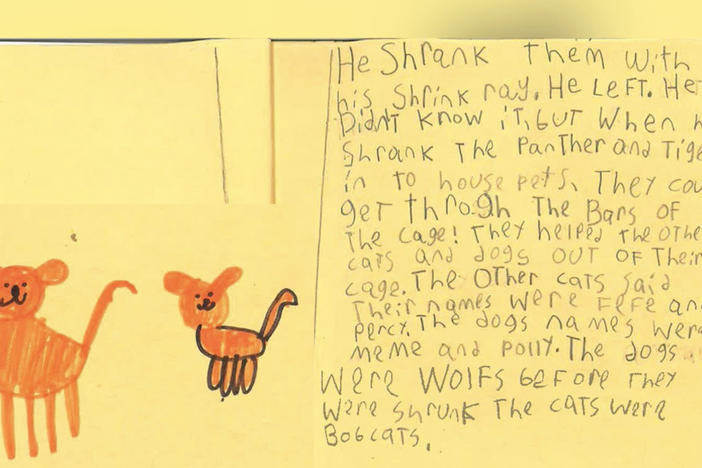 He Shrank Them with
his Shrink ray. He Left. He
Didnt know iT, but When h
Shrank The PanTher and Tige
in To house pets. They cou
get throgh The Bars of
The cage! They helped The othe
cats and dogs OUT OF Their
cage. The Other cats said
Their names were FeFe an
percy. The dogs names wer
meme and polly. The dogs
were WOLFs before They
were shrunk The caTs were
Bobcats.